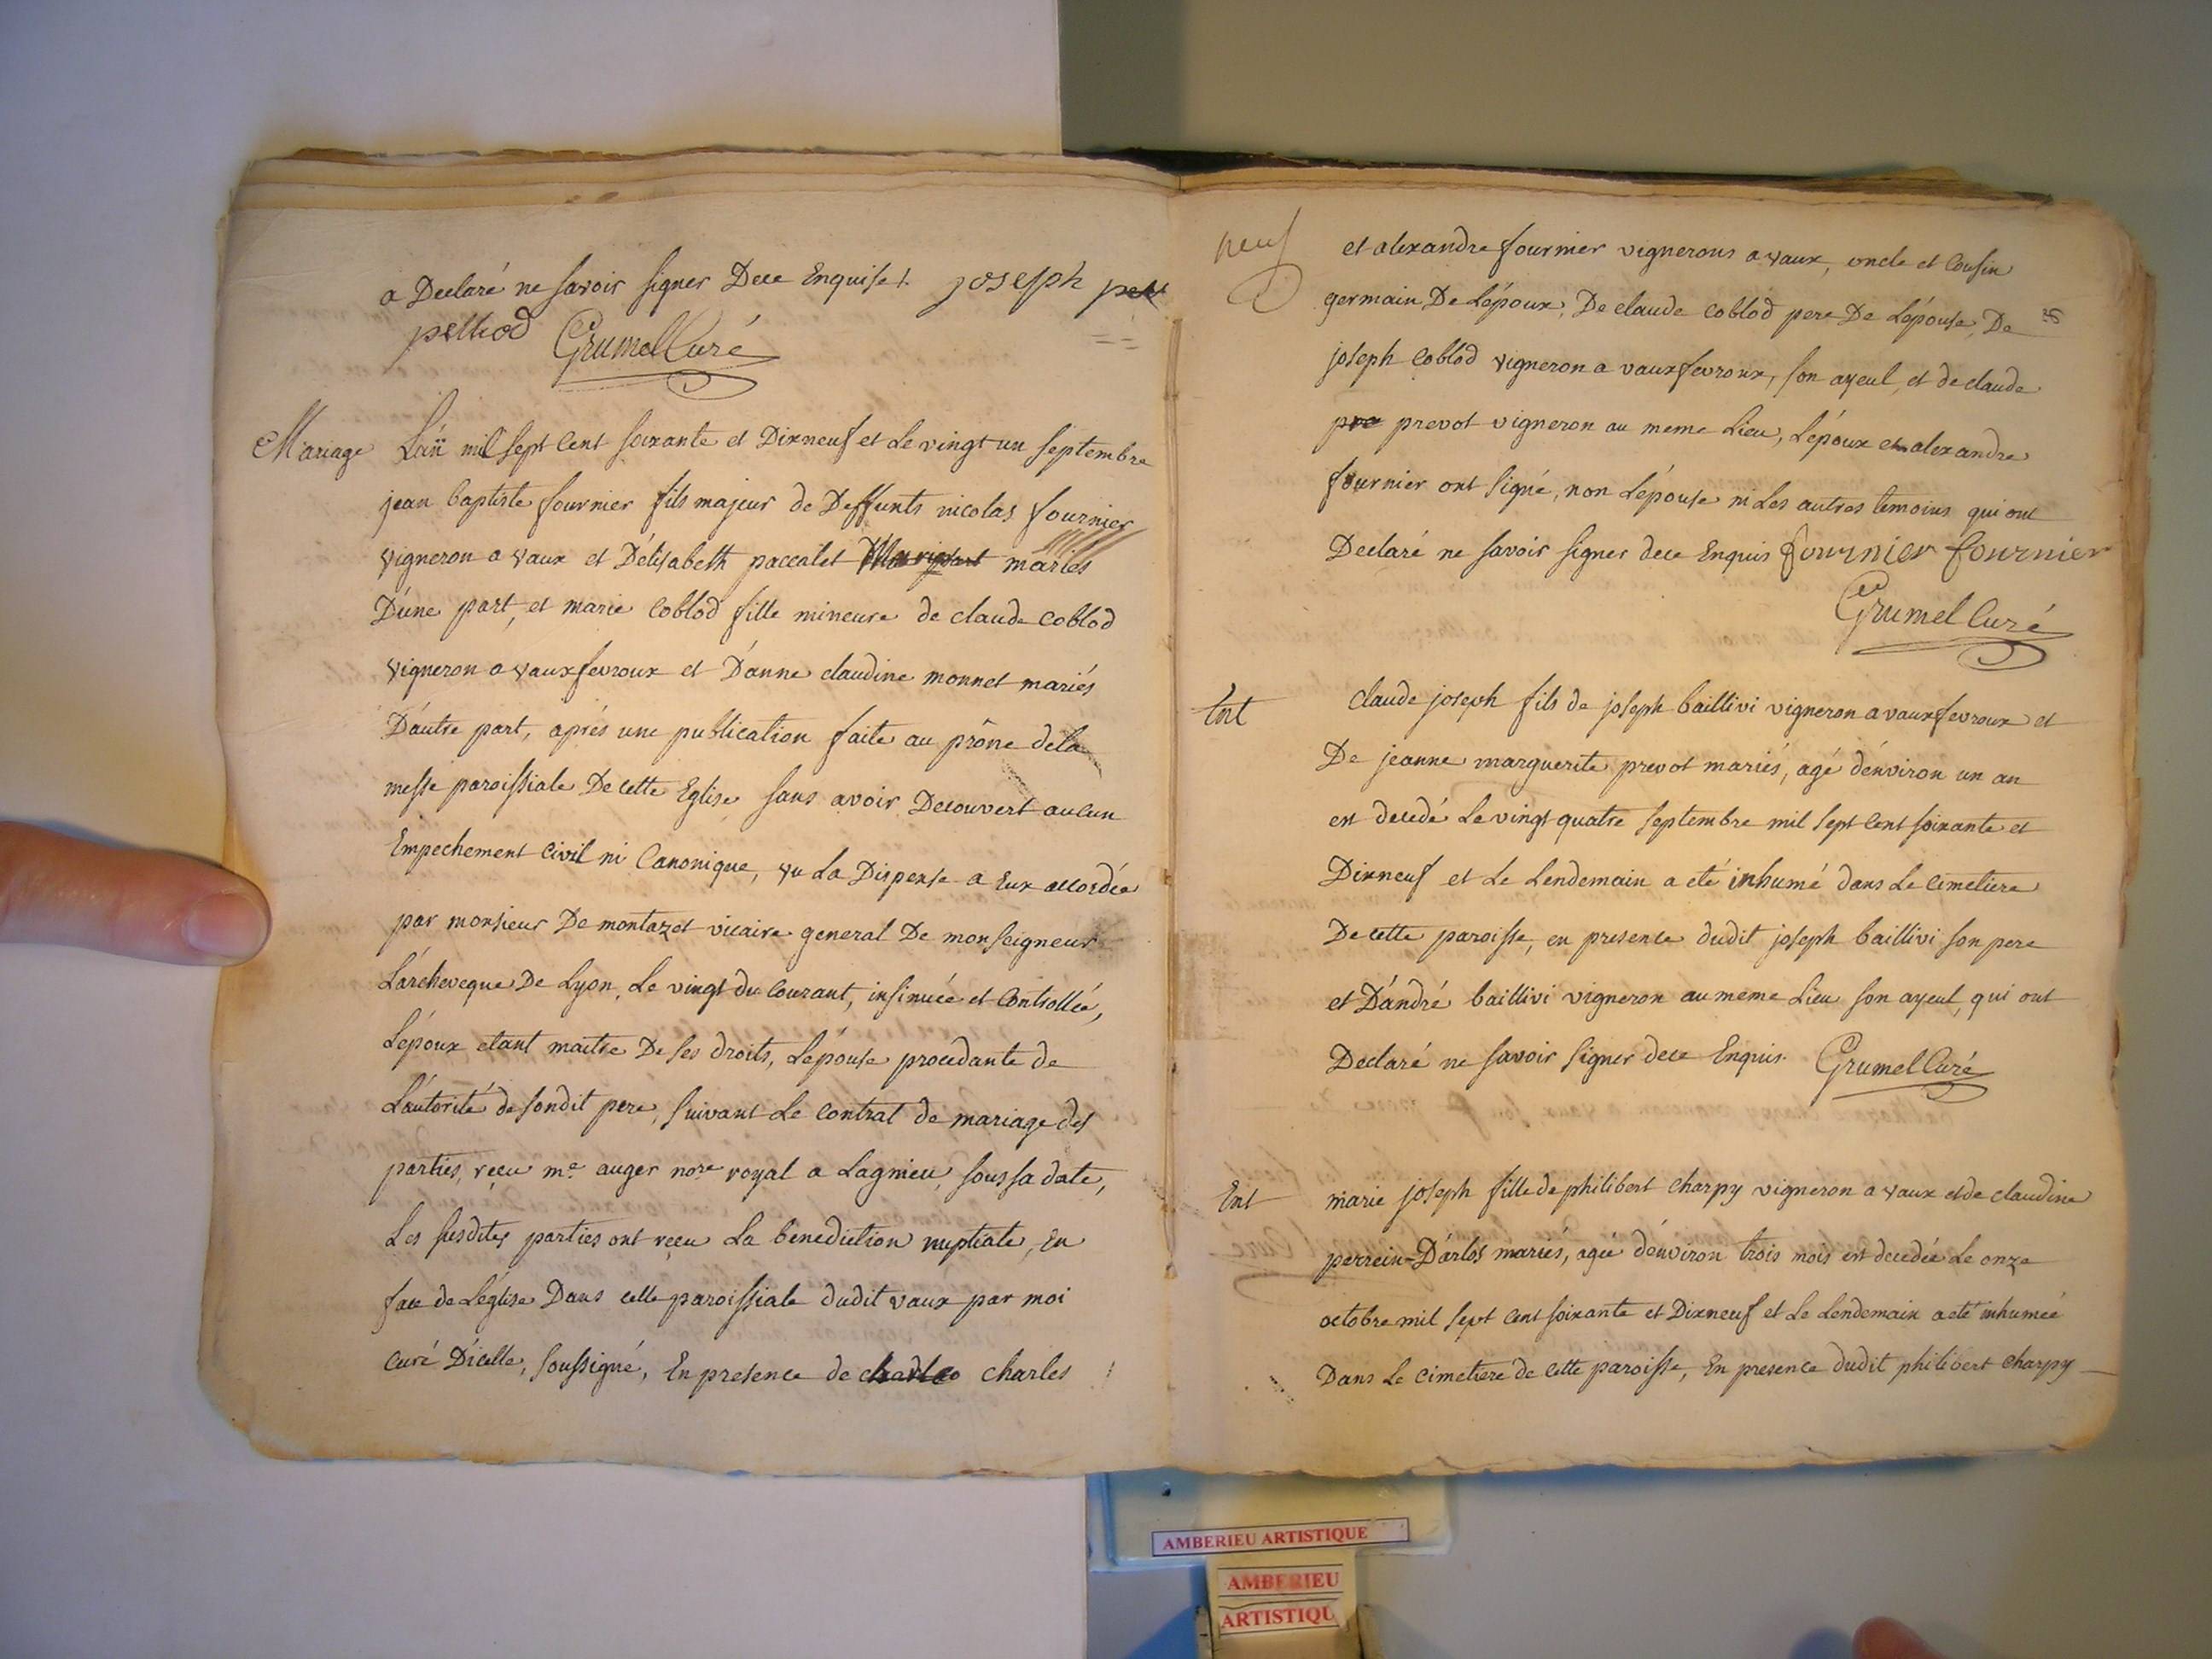 a Declaré ne savoir signer Dece Enquise. joseph pell
pelliod Grumel Curé
Mariage
L'an mil sept Cent soixante et Dixneuf et Le vingt un septembre
jean baptiste fournier fils majeur de Deffunts nicolas fournier
vigneron a vaux et D'elisabeth paccalet mariés
D'une part, et marie Coblod fille mineure de claude Coblod
vigneron a vauxfevroux et D'anne claudine monnet mariés
D'autre part, aprés une publication faite au prône dela
messe paroissiale De cette Eglise sans avoir Decouvert aucun
Empechement Civil ni Canonique, vu La Dispense a Eux accordée
par monsieur De montazet vicaire general De monseigneur
L'archeveque De Lyon, Le vingt du Courant, insinuée et Controllée,
L'époux etant maitre De ses droits, L'épouse procedante de
L'autorité de sondit pere, suivant Le Contrat de mariage des
parties, reçu me. auger nore. royal a Lagnieu, sous sa date,
Les susdites parties ont reçu La benediction nuptiale, En
face de L'eglise Dans celle paroissiale dudit vaux par moi
Curé D'icelle, soussigné, En presence de charles charles
neuf
et alexandre fournier vignerons a vaux, oncle et Cousin
germain De L'époux, De claude Coblod pere De L'épouse, De
joseph Coblod vigneron a vauxfevroux, son ayeul, et de claude
pre prevot vigneron au meme Lieu, L'époux et alexandre
fournier ont signé, non L'épouse ni Les autres temoins qui ont
Declaré ne savoir signer dece Enquis fournier fournier
Grumel Curé
Ent
claude joseph fils de joseph baillivi vigneron a vauxfevroux et
De jeanne marguerite prevot mariés, agé d'environ un an
est decedé Le vingt quatre septembre mil sept Cent soixante et
Dixneuf et Le Lendemain a eté inhumé dans Le Cimetiere
De cette paroisse, en presence dudit joseph baillivi son pere
et D'andré baillivi vigneron au meme Lieu son ayeul, qui ont
Declaré ne savoir signer dece Enquis. Grumel Curé
Ent
marie joseph fille de philibert Charpy vigneron a vaux et de claudine
perrein-D'arlos mariés, agée d'environ trois mois est decedée Le onze
octobre mil sept Cent soixante et Dixneuf et Le Lendemain a eté inhumée
Dans Le Cimetiere de Cette paroisse, En presence dudit philibert Charpy
AMBERIEU ARTISTIQUE
AMBERIEU
ARTISTIQU